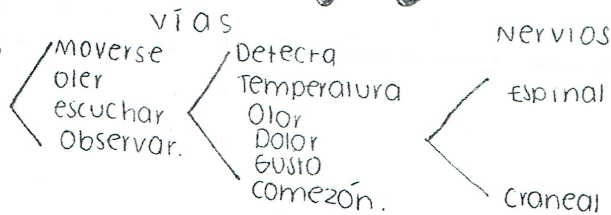 vías
moverse
oler
escuchar
observar.
Detecta
Temperatura
Olor
Dolor
Gusto
comezón.
Nervios
Espinal
Craneal